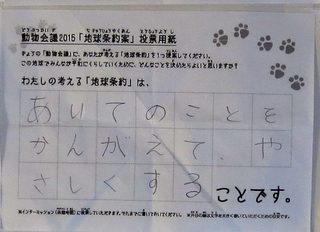 動物会議2015「地球条約案」投票用紙
きょうの「動物会議」に、あなたが考える「地球条約」を1つ提案してください。
この地球でみんなが平和にくらしていくために、どんなことを決めたらよいと思いますか?
わたしの考える「地球条約」は、
あいてのことを
かんがえて、や
さしくする
ことです。